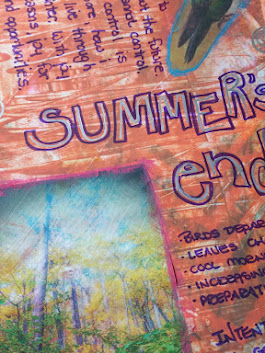 to
the future.
control.
control is
how i
live through
with joy
joy for
opportunities.
SUMMER's
end
• BIRDS DEPAR
• LEAVES CH
• COOL MORN
• INCREASING
• PREPARATI
INTENT